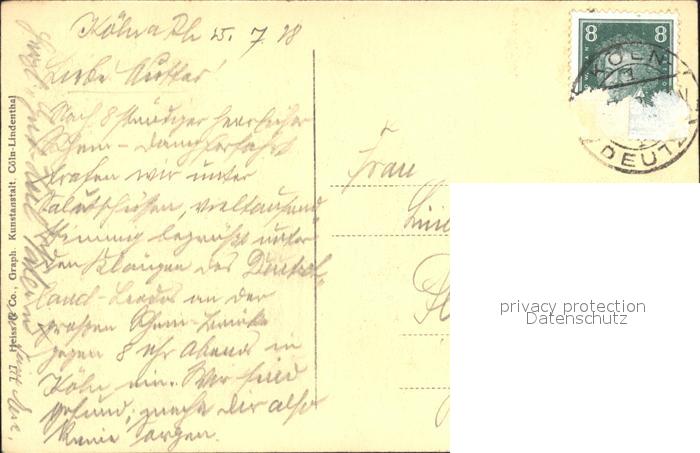 Köln a Rh 25. 7. 28
Liebe Mutter!
Nach 8 stündiger herrlicher
Rhein-Dampferfahrt
trafen wir unter
Salutschüssen, vieltausend
stimmig begrüßt unter
den Klängen des „Deutsch
land-Liedes“ an der
großen Rhein-Brücke
gegen 8 Uhr Abends in
Köln ein. Wir sind
gesund, mache Dir also
keine Sorgen.
777 Heiss & Co., Graph. Kunstanstalt, Cöln-Lindenthal
8 8
KÖLN
DEUTZ
Frau
privacy protection
Datenschutz